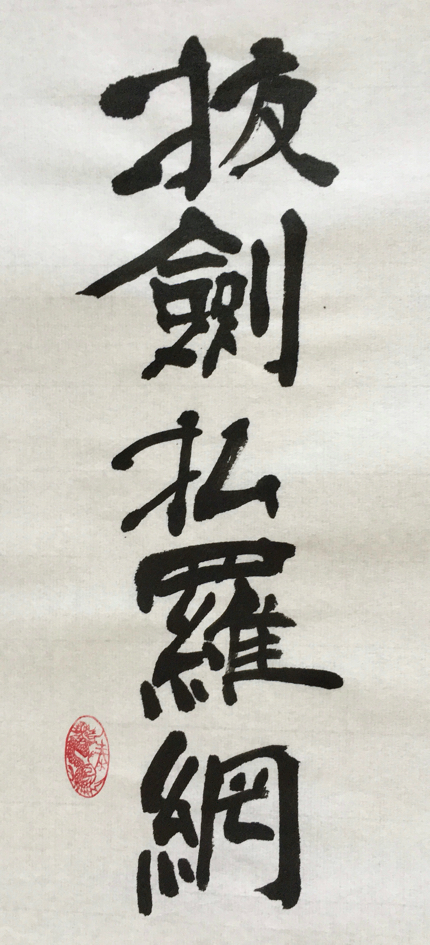 拔劍払羅網